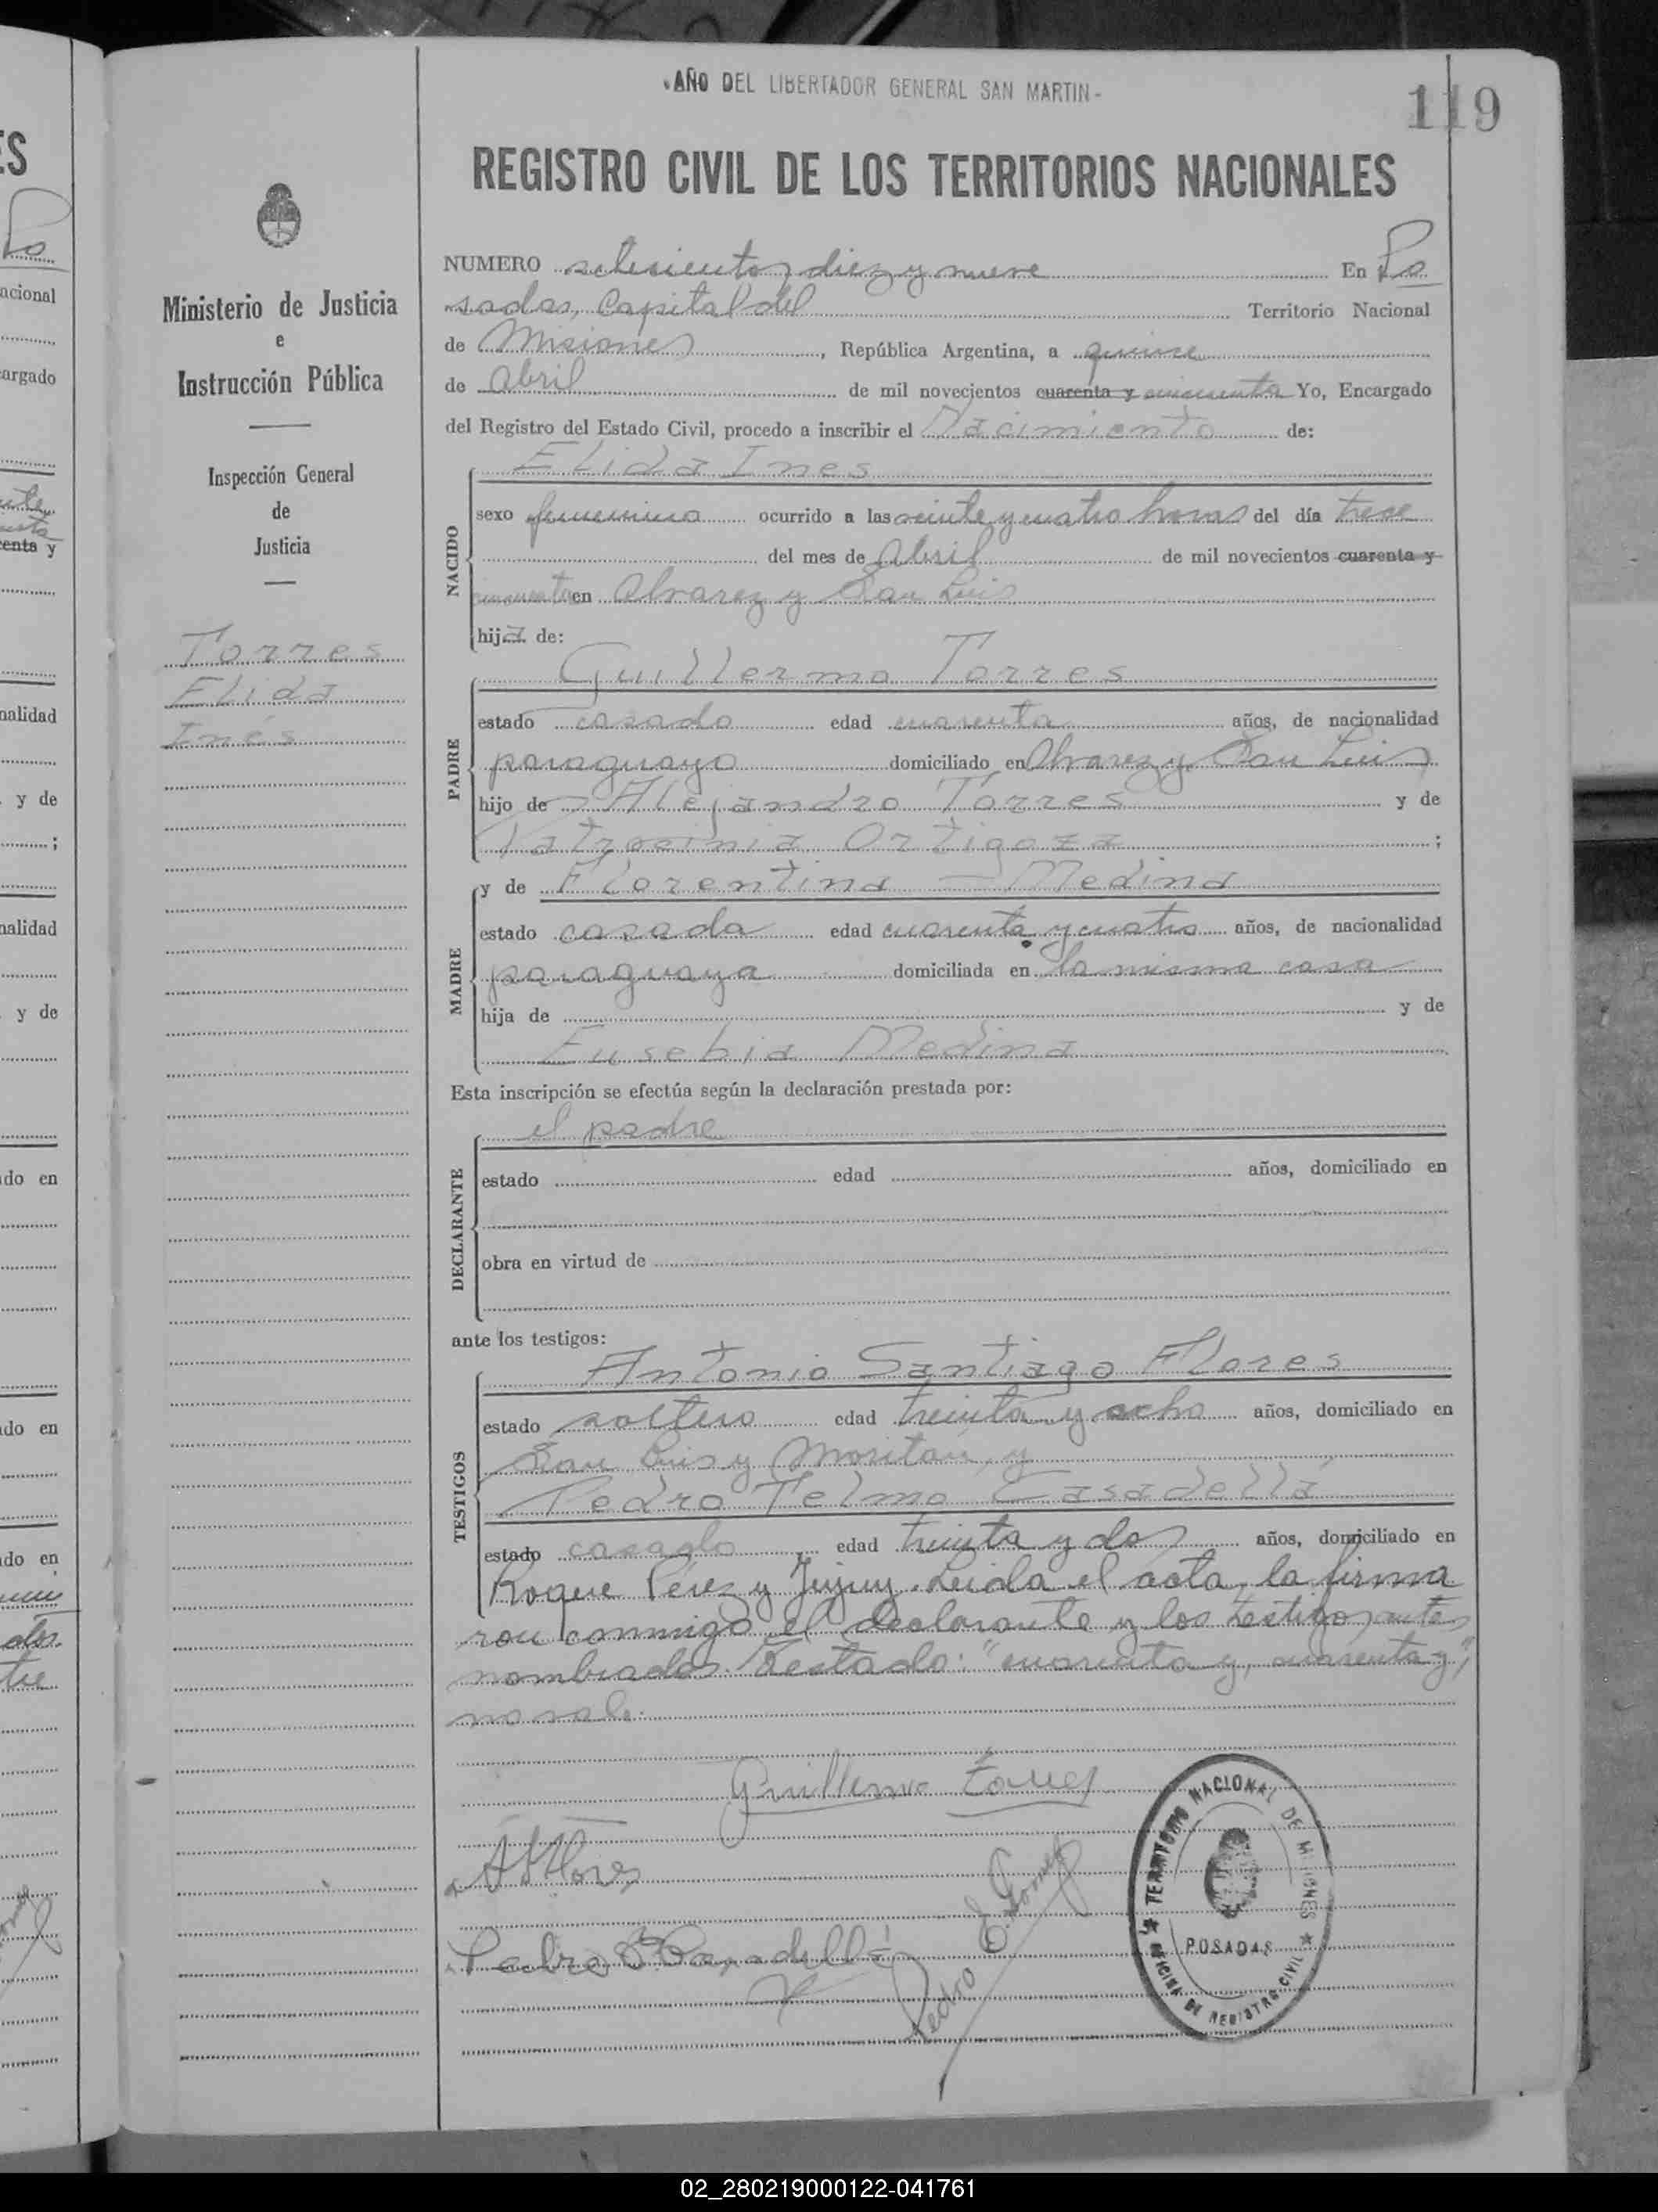 -AÑO DEL LIBERTADOR GENERAL SAN MARTIN-
119
REGISTRO CIVIL DE LOS TERRITORIOS NACIONALES
Ministerio de Justicia
e
Instrucción Pública
Inspección General
de
Justicia
Torres
Elida
Inés
NUMERO setesientos diez y nueve En Po
sadas, Capital del Territorio Nacional
de Misiones, República Argentina, a quince
de Abril de mil novecientos cuarenta y cincuenta Yo, Encargado
del Registro del Estado Civil, procedo a inscribir el Nacimiento de:
NACIDO
Elida Ines
sexo femenino ocurrido a las veinte y cuatro horas del día trece
del mes de Abril de mil novecientos cuarenta y
cincuenta en Alvarez y San Luis
hija de:
PADRE
Guillermo Torres
estado casado edad cuarenta años, de nacionalidad
paraguayo domiciliado en Alvarez y San Luis
hijo de Alejandro Torres y de
Patrocinia Ortigoza ;
MADRE
y de Florentina - Medina
estado casada edad cuarenta y cuatro años, de nacionalidad
paraguaya domiciliada en la misma casa
hija de y de
Eusebia Medina
Esta inscripción se efectúa según la declaración prestada por:
DECLARANTE
el padre
estado edad años, domiciliado en
obra en virtud de
ante los testigos:
TESTIGOS
Antonio Santiago Flores
estado soltero edad treinta y ocho años, domiciliado en
San Luis y Moritán, y
Pedro Telmo Casadellá
estado casado edad treinta y dos años, domiciliado en
Roque Pérez y Jujuy. Leida el acta, la firma
ron conmigo el declarante y los testigos antes
nombrados. Testado: "cuarenta y, cuarenta y",
no vale.
Guillermo Torres
ASFlores
Pedro T. Casadellá
Pedro E. Gomez
TERRITORIO NACIONAL DE MISIONES
POSADAS
OFICINA DE REGISTRO CIVIL
02_280219000122-041761